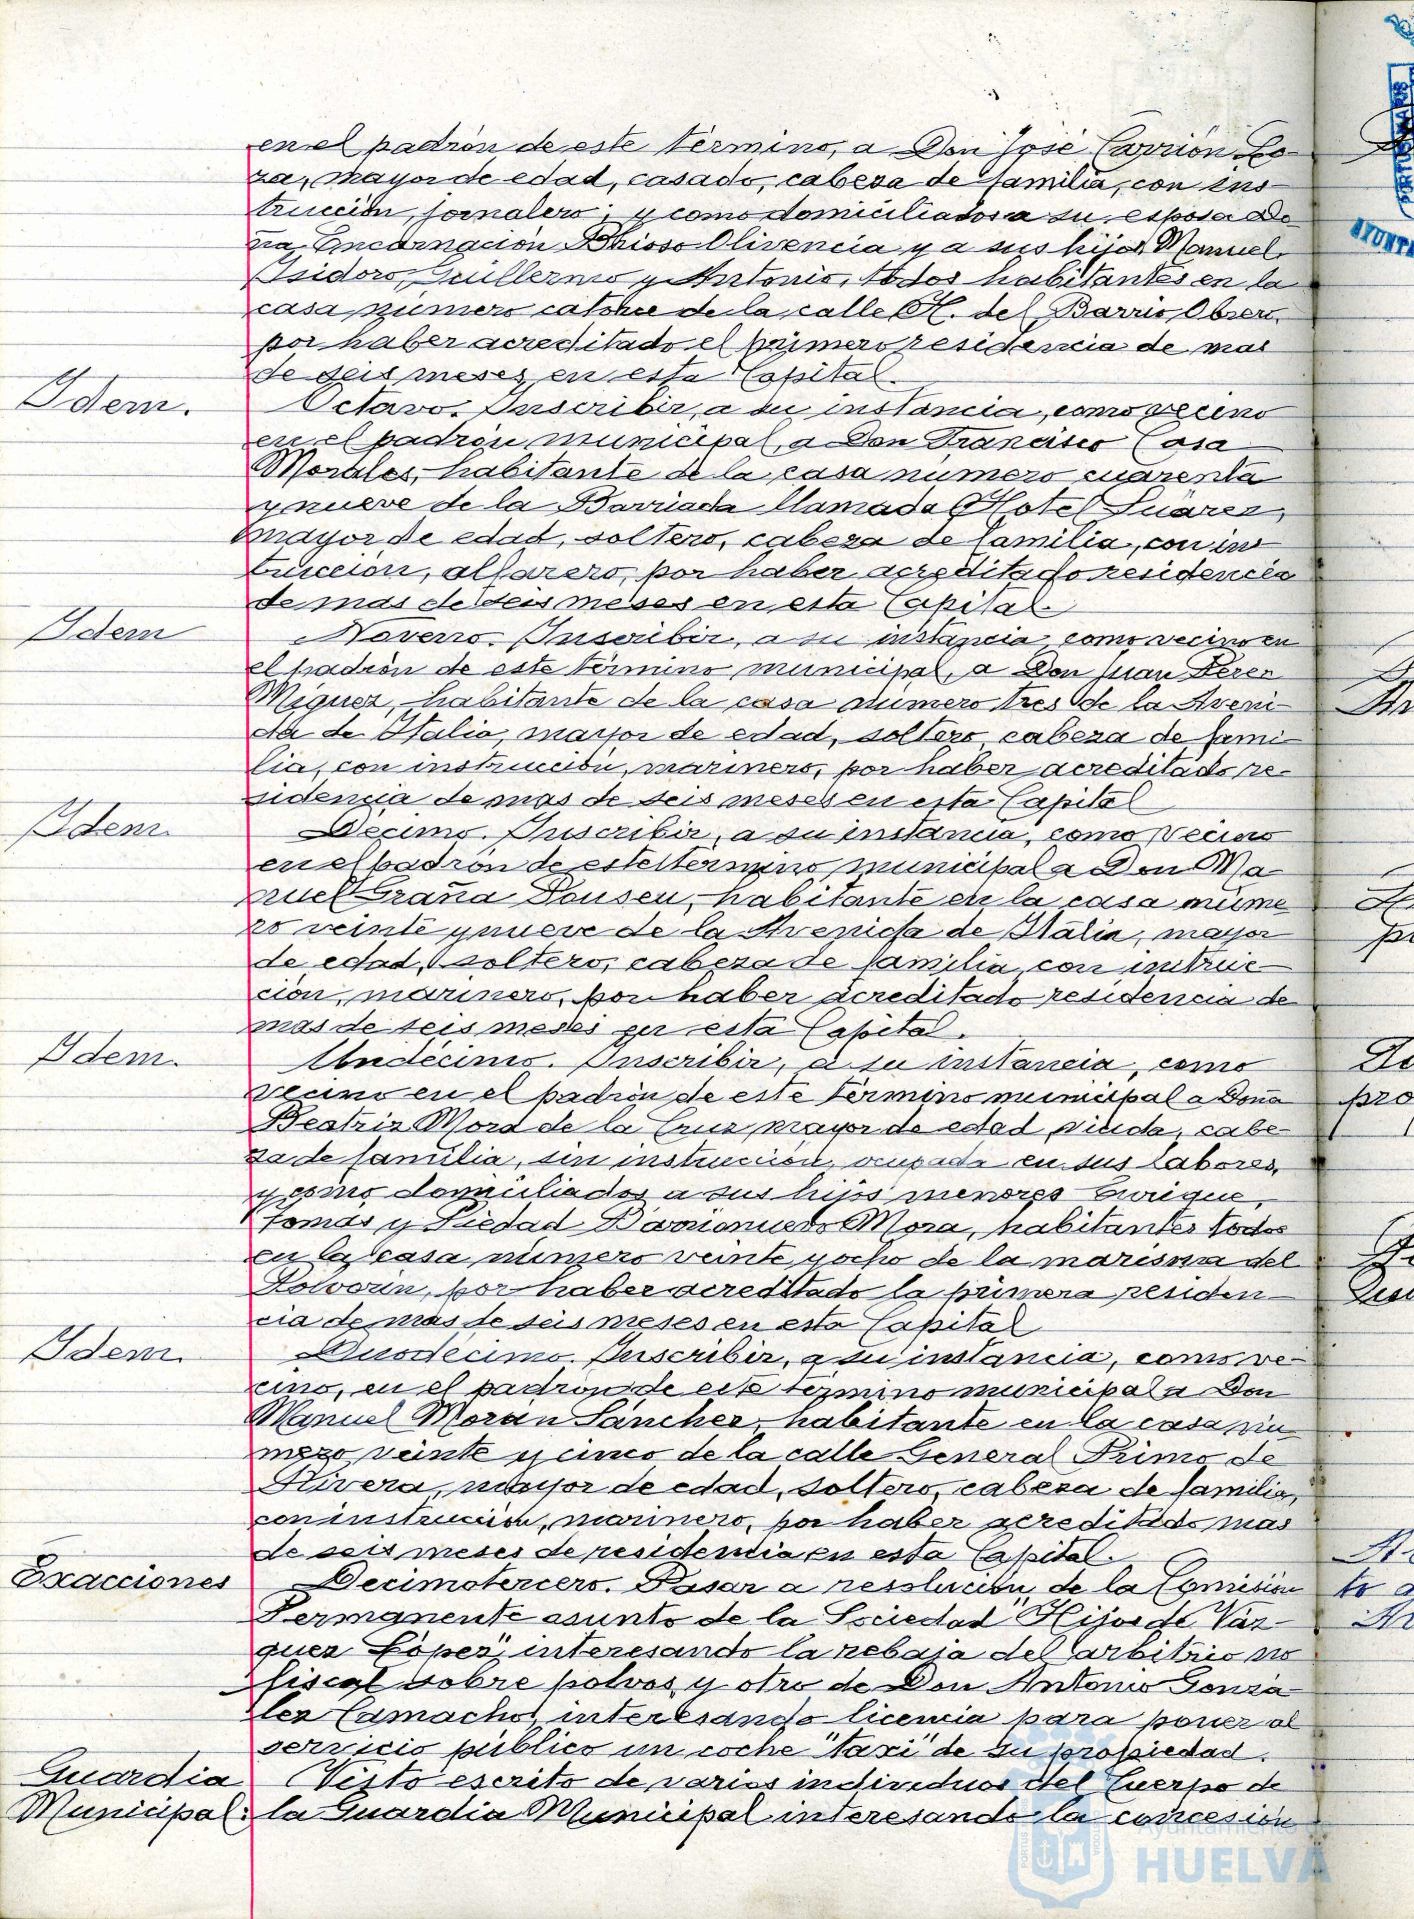 en el padrón de este término, a Don José Carrión Lo-
za, mayor de edad, casado, cabeza de familia, con ins-
trucción, jornalero; y como domiciliados a su esposa Do-
ña Encarnación Olivencia y a sus hijos Manuel,
Isidoro, Guillermo y Antonio, todos habitantes en la
casa número catorce de la calle H. del Barrio Obrero,
por haber acreditado el primero residencia de mas
de seis meses en esta Capital.
Idem.
Octavo. Inscribir, a su instancia, como vecino
en el padrón municipal, a Don Francisco Casa
Morales, habitante de la casa número cuarenta
y nueve de la Barriada llamada Hotel Suárez,
mayor de edad, soltero, cabeza de familia, con ins-
trucción, alfarero, por haber acreditado residencia
de mas de seis meses en esta Capital.
Idem
Noveno. Inscribir, a su instancia, como vecino en
el padrón de este término municipal, a Don Juan Pérez
Miguez, habitante de la casa número tres de la Aveni-
da de Italia, mayor de edad, soltero, cabeza de fami-
lia, con instrucción, marinero, por haber acreditado re-
sidencia de mas de seis meses en esta Capital
Idem.
Décimo. Inscribir, a su instancia, como vecino
en el padrón de este término municipal a Don Ma-
nuel Graña, habitante en la casa núme-
ro veinte y nueve de la Avenida de Italia, mayor
de edad, soltero, cabeza de familia, con instruc-
ción, marinero, por haber acreditado residencia de
mas de seis meses en esta Capital.
Idem.
Undécimo. Inscribir, a su instancia, como
vecino en el padrón de este término municipal a Doña
Beatriz Mora de la Cruz, mayor de edad, viuda, cabe-
za de familia, sin instrucción, ocupada en sus labores,
y como domiciliados a sus hijos menores Enrique,
Tomás y Piedad Barrionuevo Mora, habitantes todos
en la casa número veinte y ocho de la marisma del
Polvorin, por haber acreditado la primera residen-
cia de mas de seis meses en esta Capital
Idem.
Duodécimo. Inscribir, a su instancia, como ve-
cino, en el padrón de este término municipal a Don
Manuel Morán Sánchez, habitante en la casa nú-
mero veinte y cinco de la calle General Primo de
Rivera, mayor de edad, soltero, cabeza de familia,
con instrucción, marinero, por haber acreditado mas
de seis meses de residencia en esta Capital.
Exacciones
Decimotercero. Pasar a resolución de la Comisión
Permanente asunto de la Sociedad "Hijos de Váz-
quez López", interesando la rebaja del arbitrio no
fiscal sobre polvos, y otro de Don Antonio Gonzá-
lez Camacho, interesando licencia para poner al
servicio público un coche "taxi" de su propiedad.
Guardia
Municipal:
Visto escrito de varios individuos del Cuerpo de
la Guardia Municipal interesando la concesión
Ayuntamiento
HUELVA